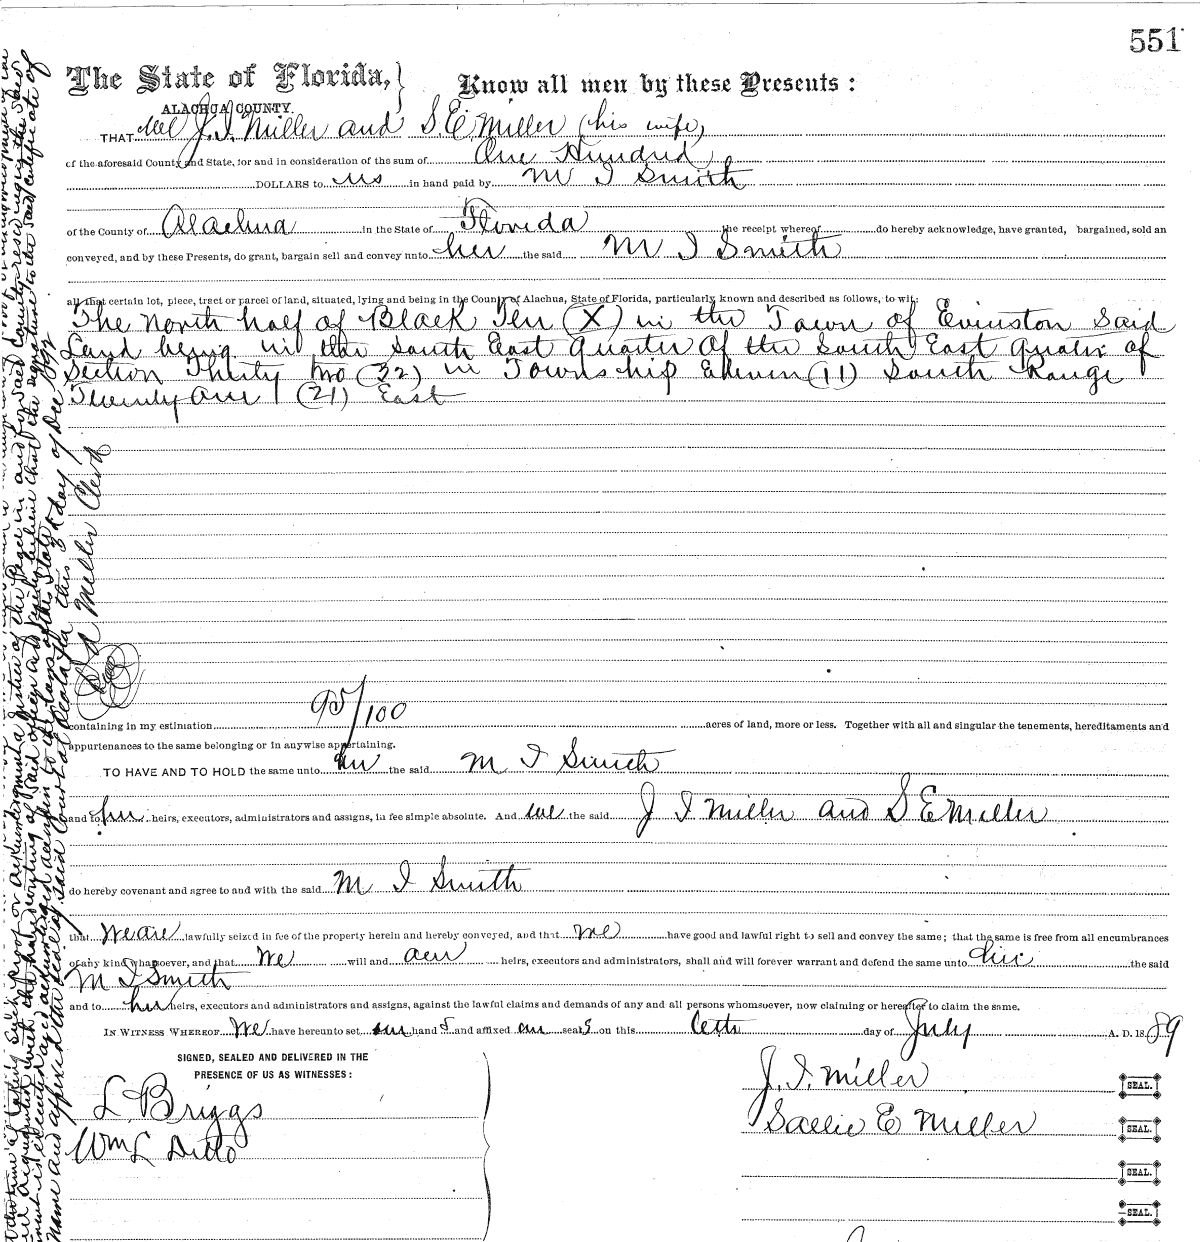 551
The State of Florida, } Know all men by these Presents :
ALACHUA COUNTY.
THAT we J. I. Miller and S E Miller (his wife)
of the aforesaid County and State, for and in consideration of the sum of One Hundred
DOLLARS to us in hand paid by M I Smith
of the County of Alachua in the State of Florida the receipt whereof do hereby acknowledge, have granted, bargained, sold an
conveyed, and by these Presents, do grant, bargain sell and convey unto her the said M I Smith
all that certain lot, piece, tract or parcel of land, situated, lying and being in the County of Alachua, State of Florida, particularly known and described as follows, to wit:
The North half of Block Ten (X) in the Town of Evinston Said
Land being in the South East quarter of the South East quarter of
Section Thirty two (32) in Township Eleven (11) South Range
Twenty one (21) East
containing in my estimation 95/100 acres of land, more or less. Together with all and singular the tenements, hereditaments and
appurtenances to the same belonging or in anywise appertaining.
TO HAVE AND TO HOLD the same unto her the said M I Smith
and to her heirs, executors, administrators and assigns, in fee simple absolute. And we the said J I Miller and S E Miller
do hereby covenant and agree to and with the said M I Smith
that we are lawfully seized in fee of the property herein and hereby conveyed, and that we have good and lawful right to sell and convey the same; that the same is free from all encumbrances
of any kind whatsoever, and that we will and our heirs, executors and administrators, shall and will forever warrant and defend the same unto her the said
M I Smith
and to her heirs, executors and administrators and assigns, against the lawful claims and demands of any and all persons whomsoever, now claiming or hereafter to claim the same.
IN WITNESS WHEREOF We have hereunto set our hands and affixed our seals on this day of July A. D. 1889
SIGNED, SEALED AND DELIVERED IN THE
PRESENCE OF US AS WITNESSES:
L Briggs
Wm L Ditto
J. I. Miller SEAL.
Sallie E Miller SEAL.
SEAL.
SEAL.
name and affixed the seal of said Court at Ocala Fla this day of Dec
Miller Clerk